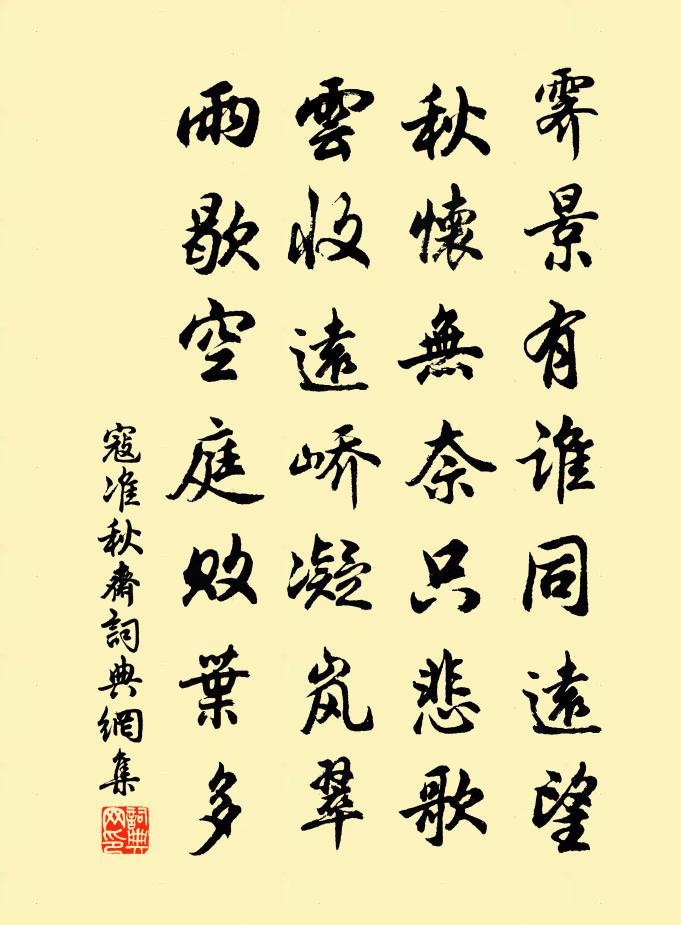 霽景有誰同遠望
秋懷無奈只悲歌
雲收遠嶠凝岚翠
雨歇空庭敗葉多
寇准秋齋詞典網集
詞典網印